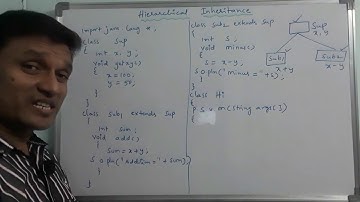 Hierarchical Inheritance
import java.lang.*;
class Sup
{
int x, y;
void getxy()
{
x=100;
y=50;
}
}
class Sub1 extends Sup
{
int sum;
void add()
{
sum=x+y;
S.O.pln("Addition="+sum);
}
}
class Sub2 extends Sup
{
int s;
void minus()
{
s=x-y;
S.O.pln("minus="+s);
}
}
class Hi
{
P S v m(String args[])
{
Sup
x, y
Sub1
Sub2
x+y
x-y